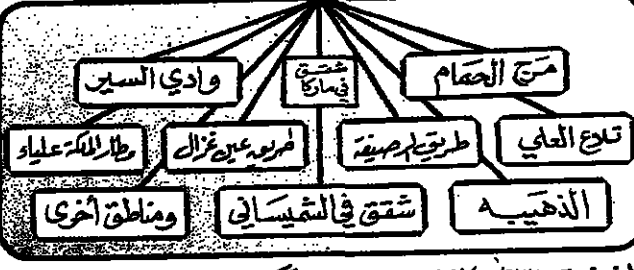 مرج الحمام
شقق في ماركا
وادي السير
تلاع العلي
طريق الرصيفة
طريق عين غزال
مطار الملكة علياء
الذهيبه
شقق في الشميساني
ومناطق أخرى